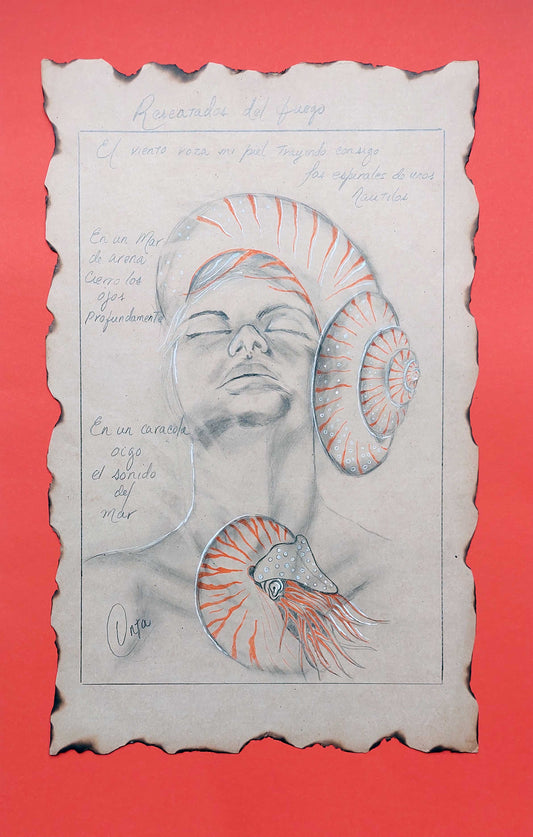 Rescatados del fuego
El viento roza mi piel Trayendo consigo
las espirales de unos
Nautilos
En un Mar
de arena
Cierro los
ojos
Profundamente
En un caracola
oigo
el sonido
del
Mar
Onta